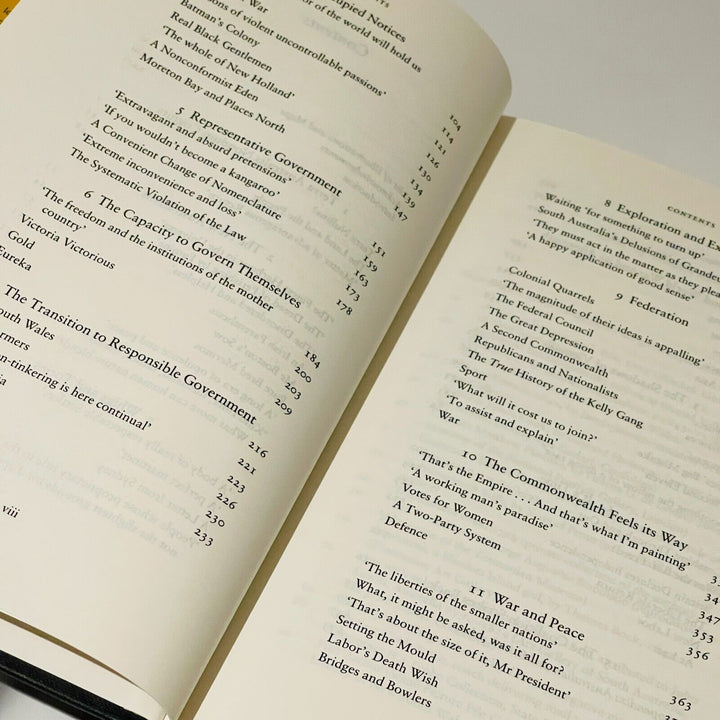 NTS
War
upied Notices 104
or of the world will hold us 114
ons of violent uncontrollable passions' 121
Batman's Colony 126
Real Black Gentlemen 130
'The whole of New Holland' 134
A Nonconformist Eden 139
Moreton Bay and Places North 147
5 Representative Government
'Extravagant and absurd pretensions' 151
'If you wouldn't become a kangaroo' 159
A Convenient Change of Nomenclature 163
'Extreme inconvenience and loss' 173
The Systematic Violation of the Law 178
6 The Capacity to Govern Themselves
'The freedom and the institutions of the mother
country' 184
Victoria Victorious 200
Gold 203
Eureka 209
The Transition to Responsible Government
outh Wales 216
rmers 221
n-tinkering is here continual' 223
ia 226
230
233
viii
CONTENTS
8 Exploration and Ex
Waiting 'for something to turn up'
South Australia's Delusions of Grandeu
'They must act in the matter as they please
'A happy application of good sense'
9 Federation
Colonial Quarrels
'The magnitude of their ideas is appalling'
The Federal Council
The Great Depression
A Second Commonwealth
Republicans and Nationalists
The True History of the Kelly Gang
Sport
'What will it cost us to join?'
'To assist and explain'
War
10 The Commonwealth Feels its Way
'That's the Empire . . . And that's what I'm painting' 33
'A working man's paradise' 34
Votes for Women 347
A Two-Party System 353
Defence 356
11 War and Peace
'The liberties of the smaller nations' 363
What, it might be asked, was it all for?
'That's about the size of it, Mr President'
Setting the Mould
Labor's Death Wish
Bridges and Bowlers